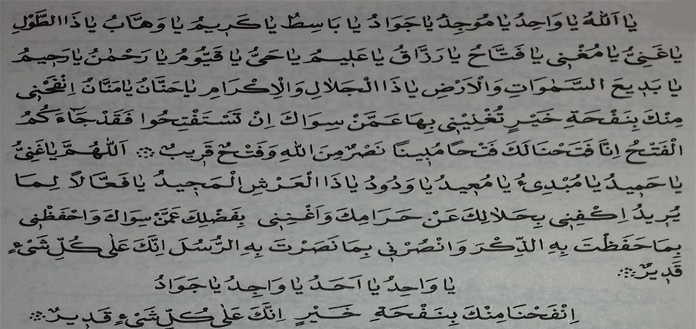 يَا اَللهُ يَا وَاحِدُ يَا مُوجِدُ يَا جَوَادُ يَا بَاسِطُ يَا كَرِيمُ يَا وَهَّابُ يَا ذَا الطَّوْلِ
يَا غَنِيُّ يَا مُغْنِي يَا فَتَّاحُ يَا رَزَّاقُ يَا عَلِيمُ يَا حَيُّ يَا قَيُّومُ يَا رَحْمٰنُ يَا رَحِيمُ
يَا بَدِيعَ السَّمٰوَاتِ وَالْاَرْضِ يَا ذَا الْجَلَالِ وَالْاِكْرَامِ يَا حَنَّانُ يَا مَنَّانُ اِنْفَحْنِي
مِنْكَ بِنَفْحَةِ خَيْرٍ تُغْنِينِي بِهَا عَمَّنْ سِوَاكَ اِنْ تَسْتَفْتِحُوا فَقَدْ جَاءَكُمُ
الْفَتْحُ اِنَّا فَتَحْنَا لَكَ فَتْحًا مُبِينًا نَصْرٌ مِنَ اللهِ وَفَتْحٌ قَرِيبٌ ۞ اَللّٰهُمَّ يَا غَنِيُّ
يَا حَمِيدُ يَا مُبْدِئُ يَا مُعِيدُ يَا وَدُودُ يَا ذَا الْعَرْشِ الْمَجِيدُ يَا فَعَّالًا لِمَا
يُرِيدُ اِكْفِنِي بِحَلَالِكَ عَنْ حَرَامِكَ وَاَغْنِنِي بِفَضْلِكَ عَمَّنْ سِوَاكَ وَاحْفَظْنِي
بِمَا حَفِظْتَ بِهِ الذِّكْرَ وَانْصُرْنِي بِمَا نَصَرْتَ بِهِ الرُّسُلَ اِنَّكَ عَلٰى كُلِّ شَيْءٍ
قَدِيرٌ ۞
يَا وَاحِدُ يَا اَحَدُ يَا وَاجِدُ يَا جَوَادُ
اِنْفَحْنَا مِنْكَ بِنَفْحَةِ خَيْرٍ اِنَّكَ عَلٰى كُلِّ شَيْءٍ قَدِيرٌ ۞